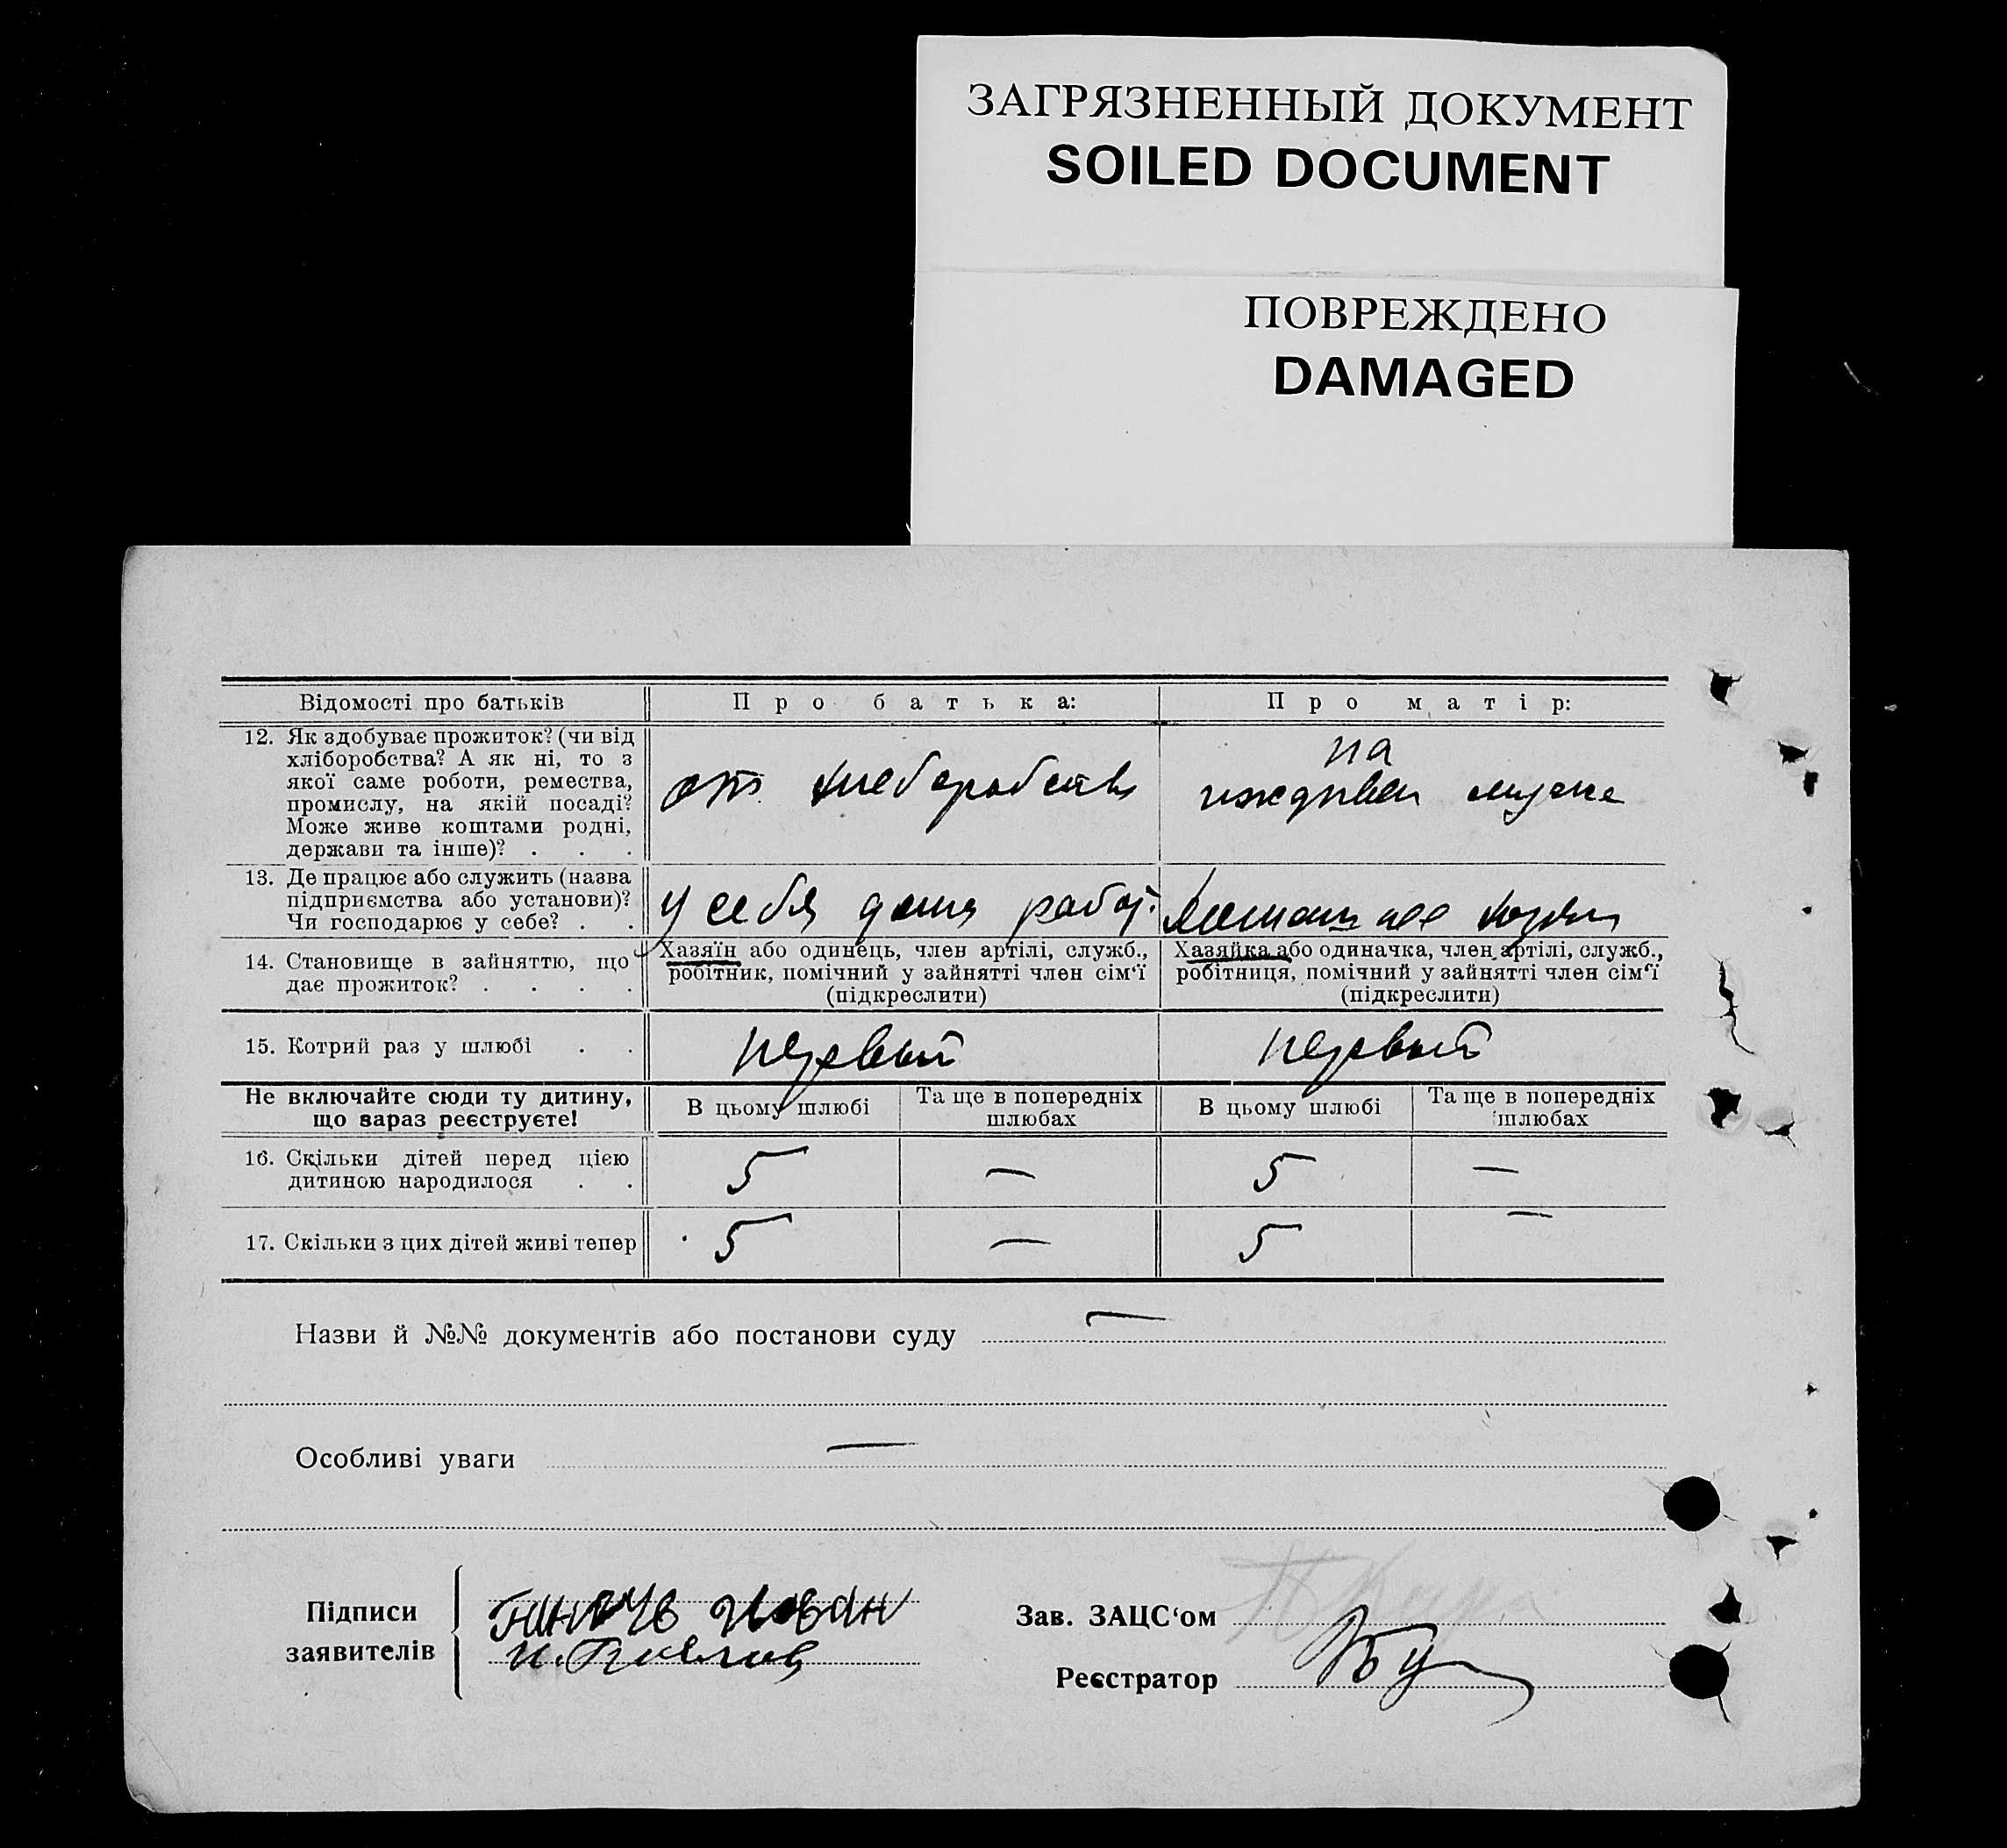 ЗАГРЯЗНЕННЫЙ ДОКУМЕНТ
SOILED DOCUMENT
ПОВРЕЖДЕНО
DAMAGED
Відомості про батьків Про батька: Про матір:
12. Як здобуває прожиток? (чи від
хліборобства? А як ні, то з
якої саме роботи, ремества,
промислу, на якій посаді?
Може живе коштами родні,
держави та інше)? . . .
от хлеборобства
на
иждивен мужа
13. Де працює або служить (назва
підприємства або установи)?
Чи господарює у себе? . .
у себя дома работ.
14. Становище в зайняттю, що
дає прожиток? . . . .
Хазяїн або одинець, член артілі, служб.,
робітник, помічний у зайнятті член сім'ї
(підкреслити)
Хазяйка або одиначка, член артілі, служб.,
робітниця, помічний у зайнятті член сім'ї
(підкреслити)
15. Котрий раз у шлюбі . . первый первый
Не включайте сюди ту дитину,
що зараз реєструєте!
В цьому шлюбі Та ще в попередніх
шлюбах
В цьому шлюбі Та ще в попередніх
шлюбах
16. Скільки дітей перед цією
дитиною народилося . .
5 — 5 —
17. Скільки з цих дітей живі тепер 5 — 5 —
Назви й №№ документів або постанови суду —
Особливі уваги —
Підписи
заявителів
Иван
Зав. ЗАЦС'ом
Реєстратор